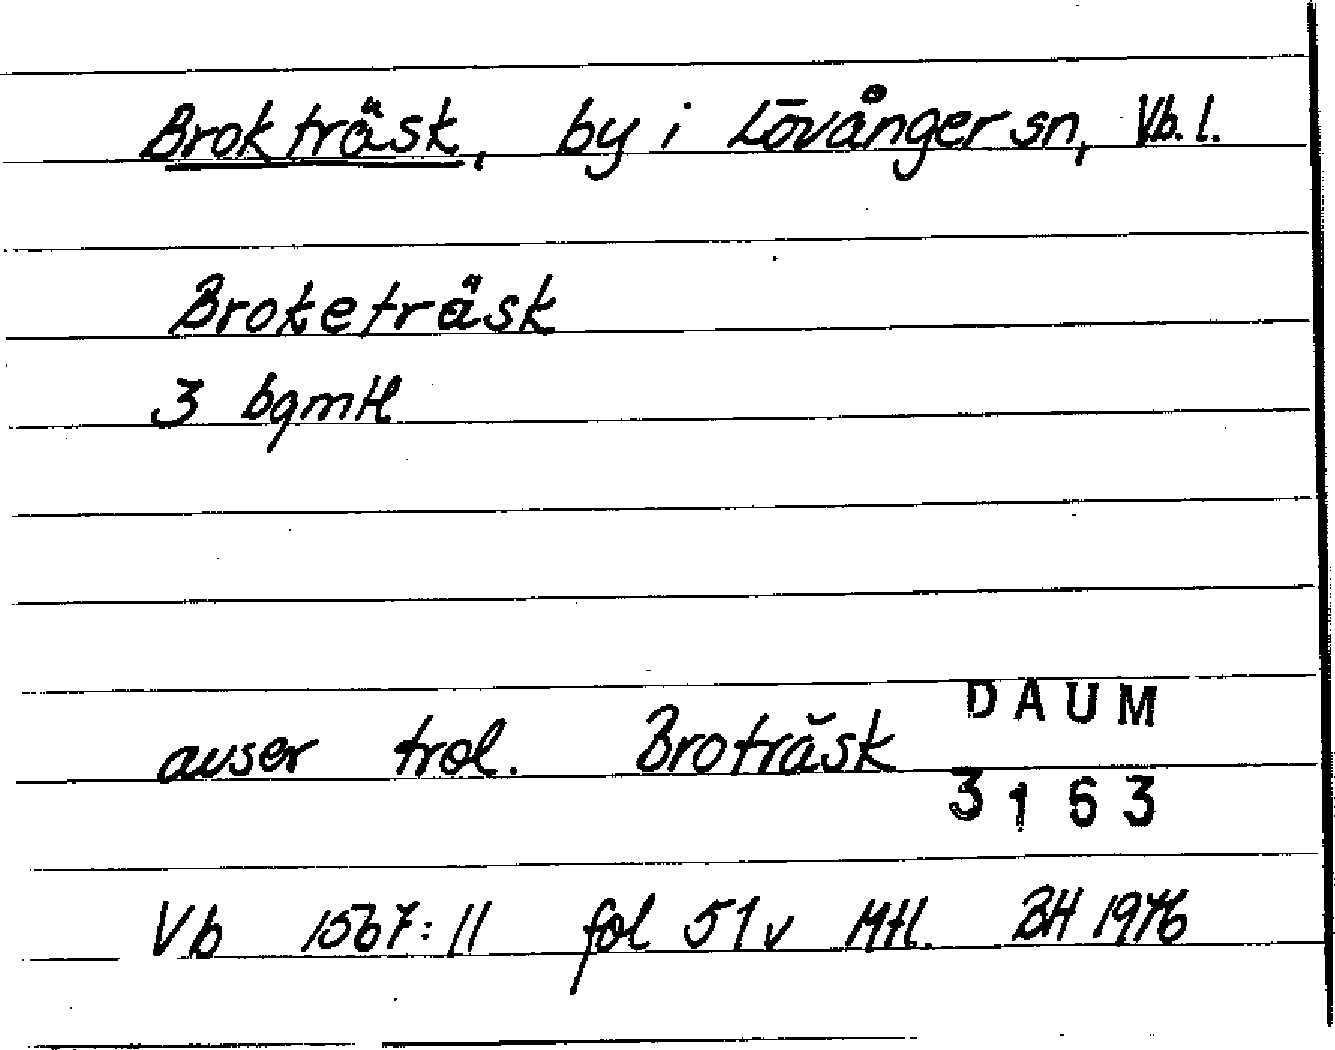 Brokträsk, by i Lövånger sn, Vb. l.
Broketräsk
3 bqmtl
avser trol. Broträsk
DAUM
3163
Vb 1567:11 fol 51v Mtl. BH 1976